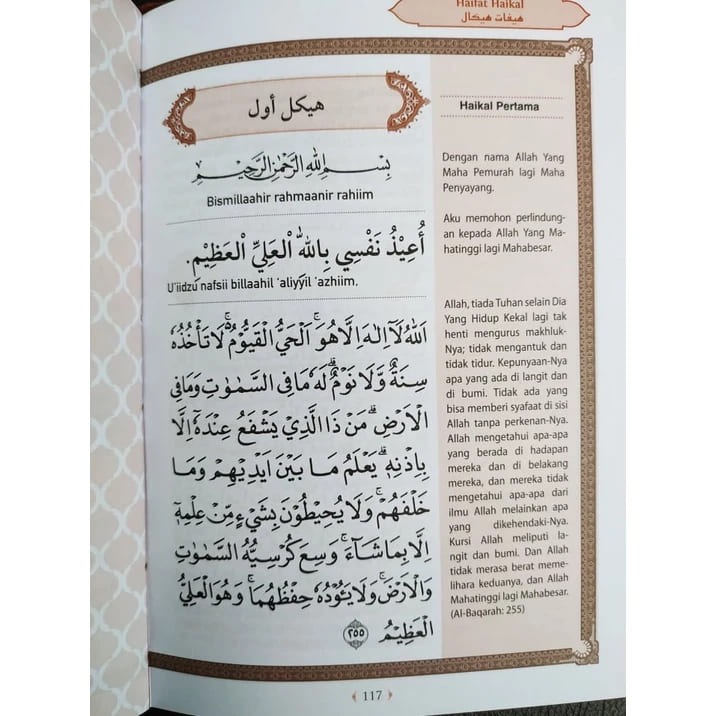 Haifat Haikal
هيفات هيكال
هيكل أول
بِسْمِ اللهِ الرَّحْمٰنِ الرَّحِيْمِ
Bismillaahir rahmaanir rahiim
أُعِيْذُ نَفْسِيْ بِاللهِ الْعَلِيِّ الْعَظِيْمِ.
U'iidzu nafsii billaahil 'aliyyil 'azhiim.
اَللّٰهُ لَآ اِلٰهَ اِلَّا هُوَۚ اَلْحَيُّ الْقَيُّوْمُ ەۚ لَا تَأْخُذُهٗ
سِنَةٌ وَّلَا نَوْمٌۗ لَهٗ مَا فِى السَّمٰوٰتِ وَمَا فِى
الْاَرْضِۗ مَنْ ذَا الَّذِيْ يَشْفَعُ عِنْدَهٗٓ اِلَّا
بِاِذْنِهٖۗ يَعْلَمُ مَا بَيْنَ اَيْدِيْهِمْ وَمَا
خَلْفَهُمْۚ وَلَا يُحِيْطُوْنَ بِشَيْءٍ مِّنْ عِلْمِهٖٓ
اِلَّا بِمَا شَاۤءَۚ وَسِعَ كُرْسِيُّهُ السَّمٰوٰتِ
وَالْاَرْضَۚ وَلَا يَـُٔوْدُهٗ حِفْظُهُمَاۚ وَهُوَ الْعَلِيُّ
الْعَظِيْمُ ٢٥٥
Haikal Pertama
Dengan nama Allah Yang
Maha Pemurah lagi Maha
Penyayang.
Aku memohon perlindung-
an kepada Allah Yang Ma-
hatinggi lagi Mahabesar.
Allah, tiada Tuhan selain Dia
Yang Hidup Kekal lagi tak
henti mengurus makhluk-
Nya; tidak mengantuk dan
tidak tidur. Kepunyaan-Nya
apa yang ada di langit dan
di bumi. Tidak ada yang
bisa memberi syafaat di sisi
Allah tanpa perkenan-Nya.
Allah mengetahui apa-apa
yang berada di hadapan
mereka dan di belakang
mereka, dan mereka tidak
mengetahui apa-apa dari
ilmu Allah melainkan apa
yang dikehendaki-Nya.
Kursi Allah meliputi la-
ngit dan bumi. Dan Allah
tidak merasa berat meme-
lihara keduanya, dan Allah
Mahatinggi lagi Mahabesar.
(Al-Baqarah: 255)
117